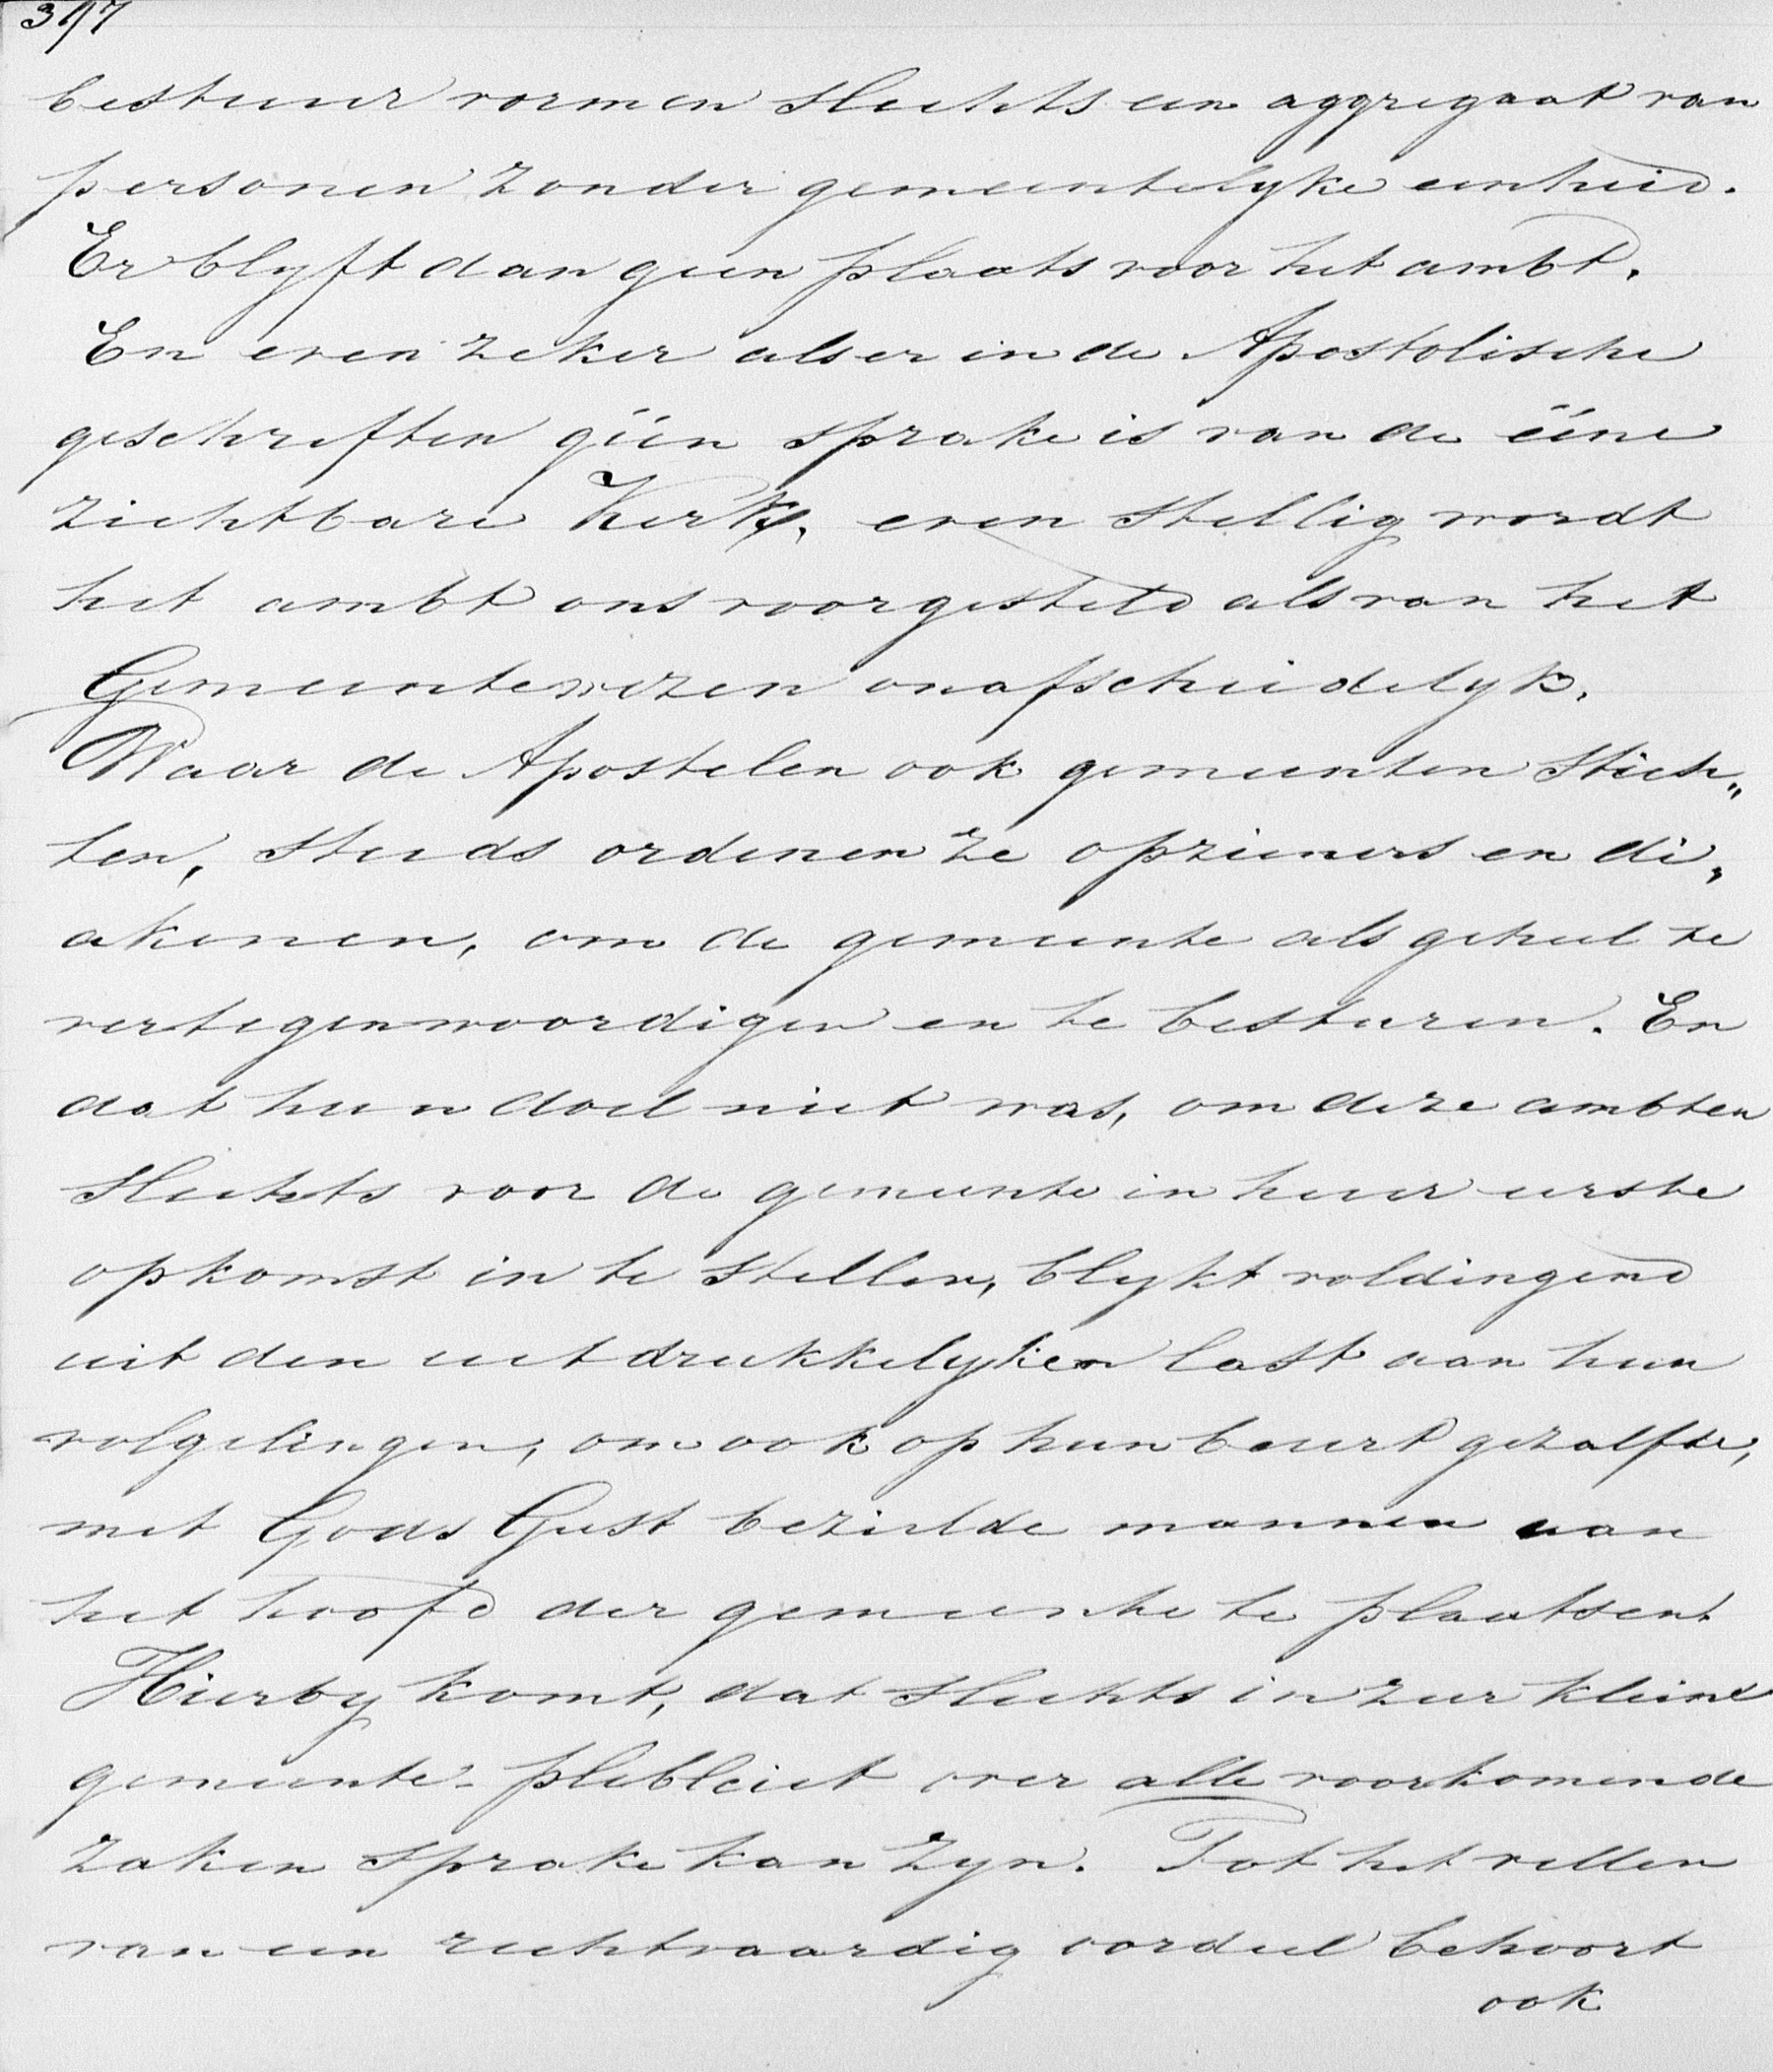 347
bestuur vormen slechts een aggregaat van
personen zonder gemeentelyke eenheid.
Er blyft dan geen plaats voor het ambt.
En even zeker als er in de Apostolische
geschriften géén sprake is van de ééne
zichtbare Kerk, even stellig wordt
het ambt ons voorgesteld als van het
Gemeentewezen onafscheidelyk.
Waar de Apostelen ook gemeenten stich„
ten, steeds ordenen ze opzieners en di„
akenen, om de gemeente als geheel te
vertegenwoordigen en te besturen. En
dat hun doel niet was, om deze ambten
slechts voor de gemeente in heur eerste
opkomst in te stellen, blykt voldingend
uit den uitdrukkelyken last aan hun
volgelingen, om ook op hun beurt gezalfde,
met Gods Geest bezielde mannen aan
het hoofd der gemeente te plaatsen.
Hierby komt, dat slechts in zeer kleine
gemeente - plebisciet over alle voorkomende
zaken sprake kan zyn. Tot het vellen
van een rechtvaardig oordeel behoort
ook